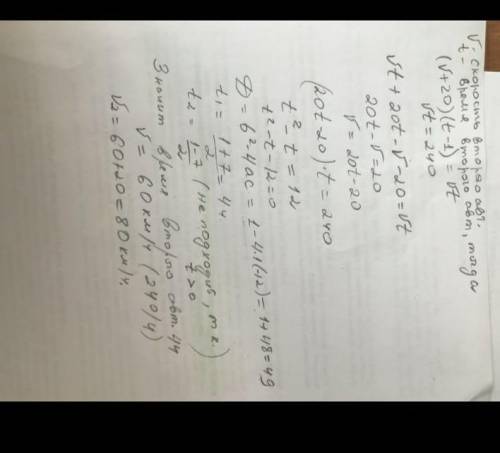 V - скорость второго авт.
t - время второго авт, тогда
(V+20)(t-1) = Vt
Vt = 240
Vt + 20t - V - 20 = Vt
20t - V = 20
V = 20t - 20
(20t-20)·t = 240
t² - t = 12
t² - t - 12 = 0
D = b² - 4ac = 1 - 4·1(-12) = 1+48 = 49
t₁ = (1+7)/2 = 4ч
t₂ = (1-7)/2 (не подходит, т.к. t>0)
Значит время второго авт. 4ч
V = 60 км/ч (240/4)
V₂ = 60+20 = 80 км/ч.